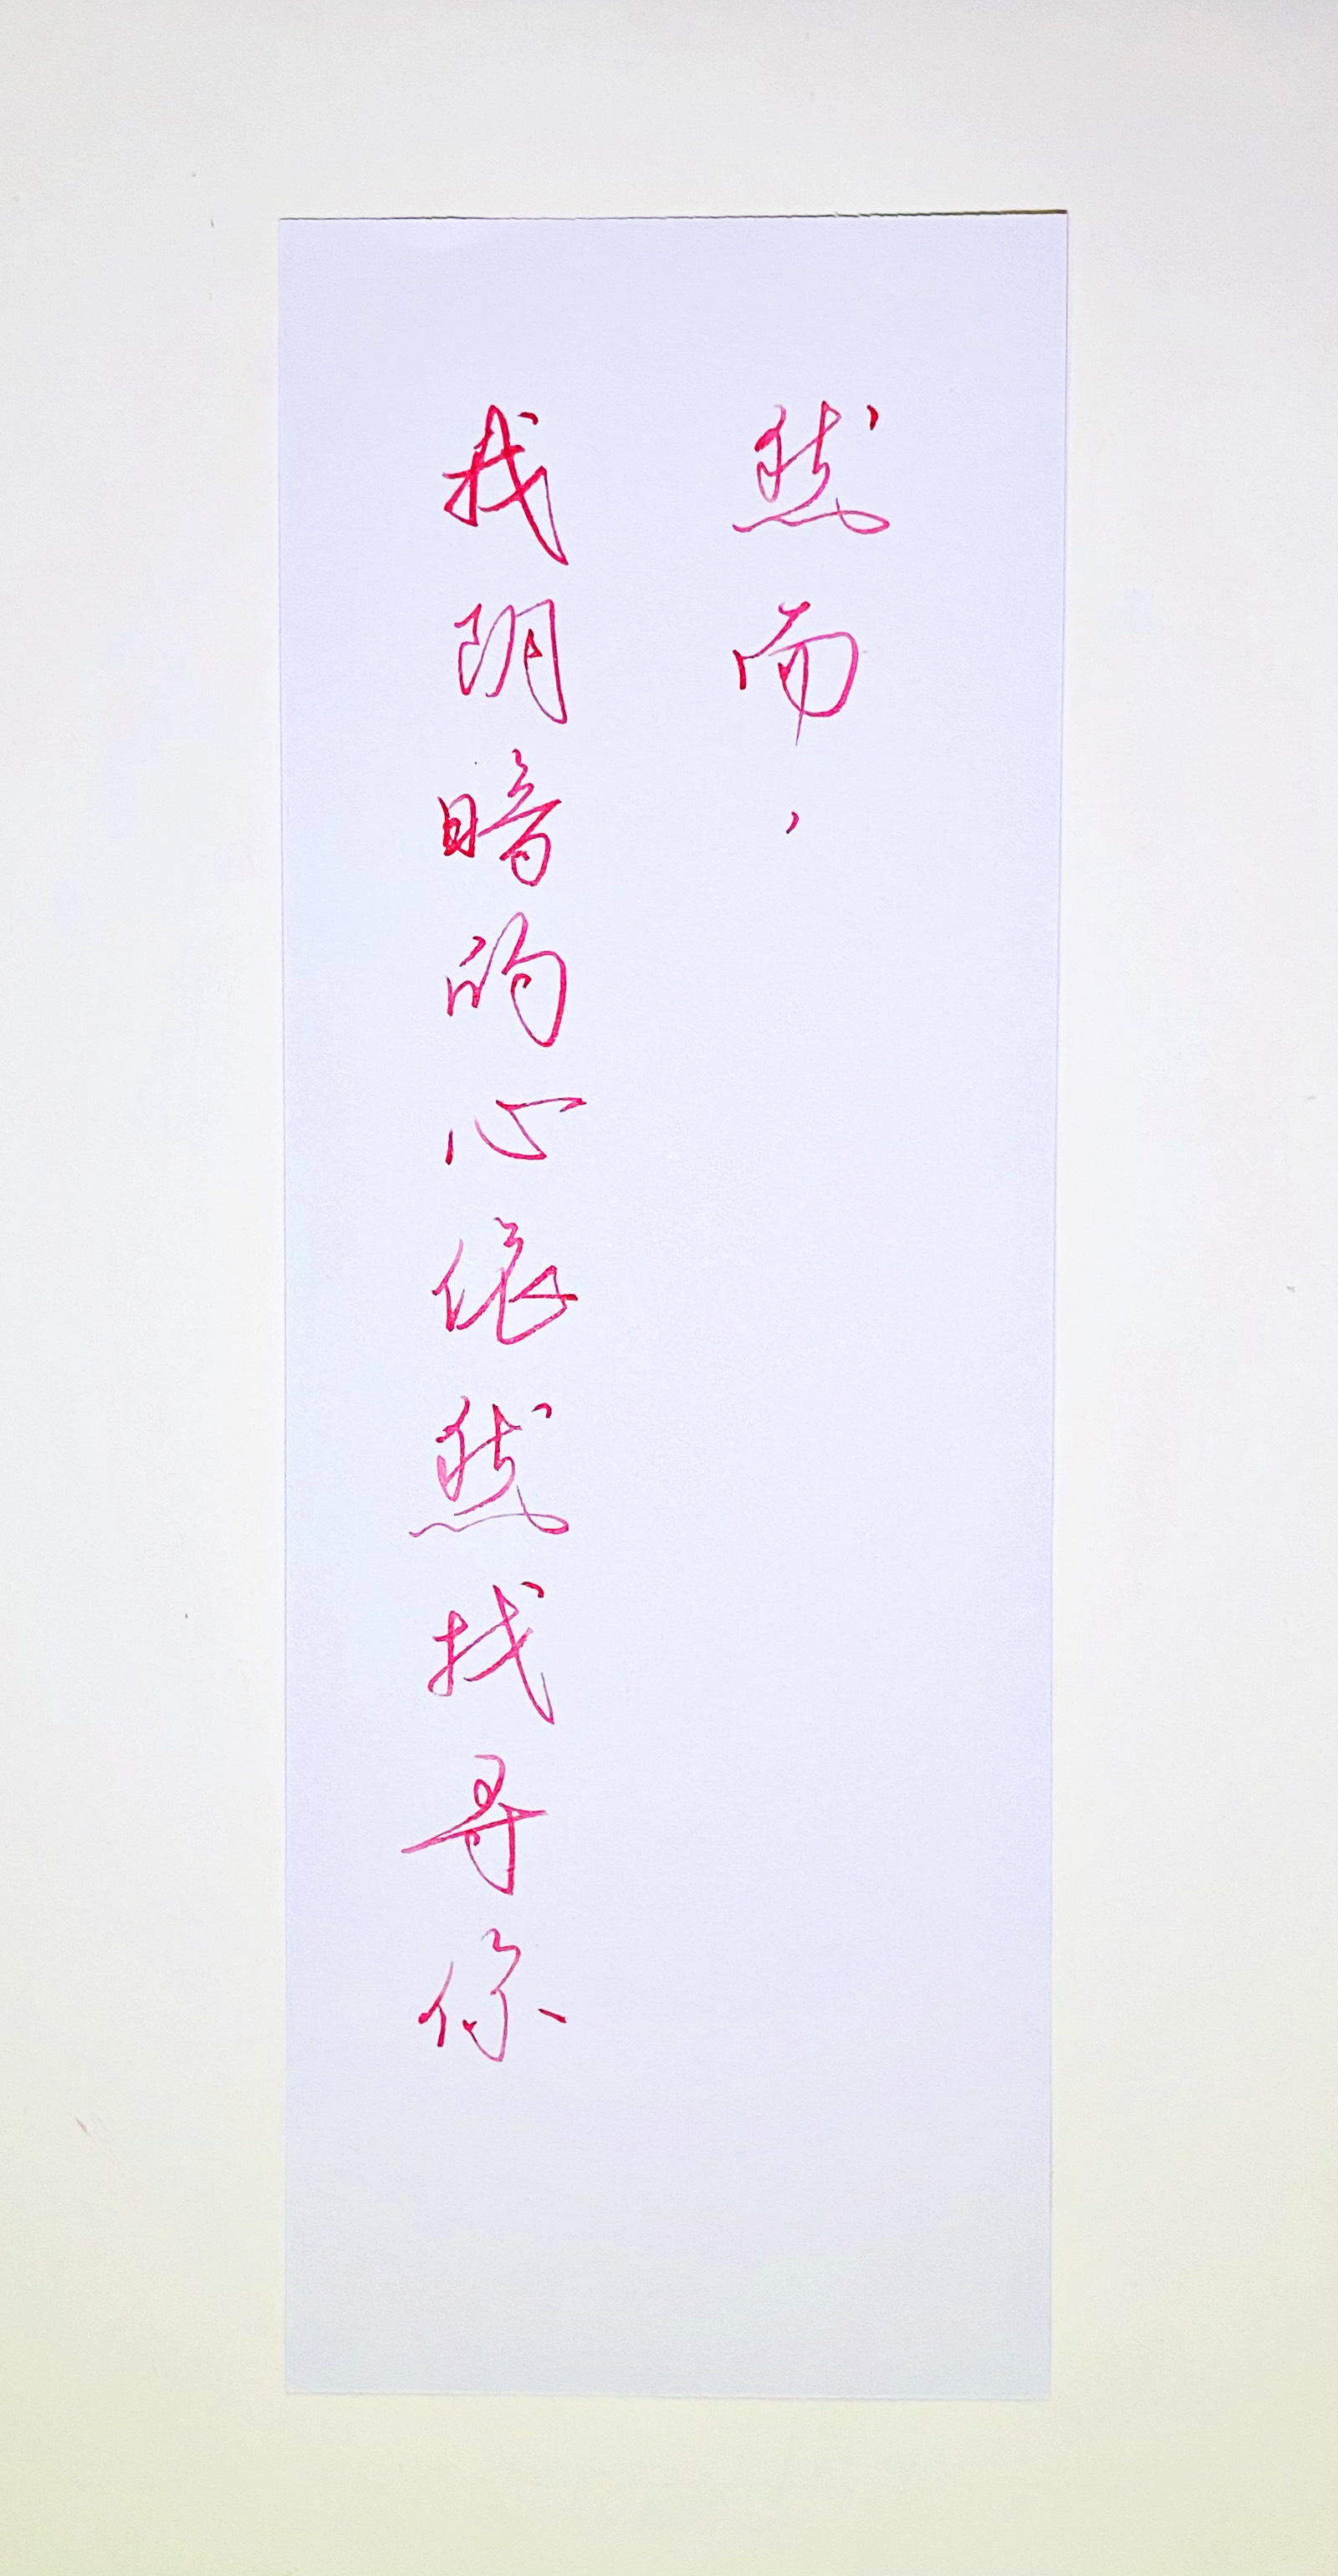 然而，
我阴暗的心依然找寻你